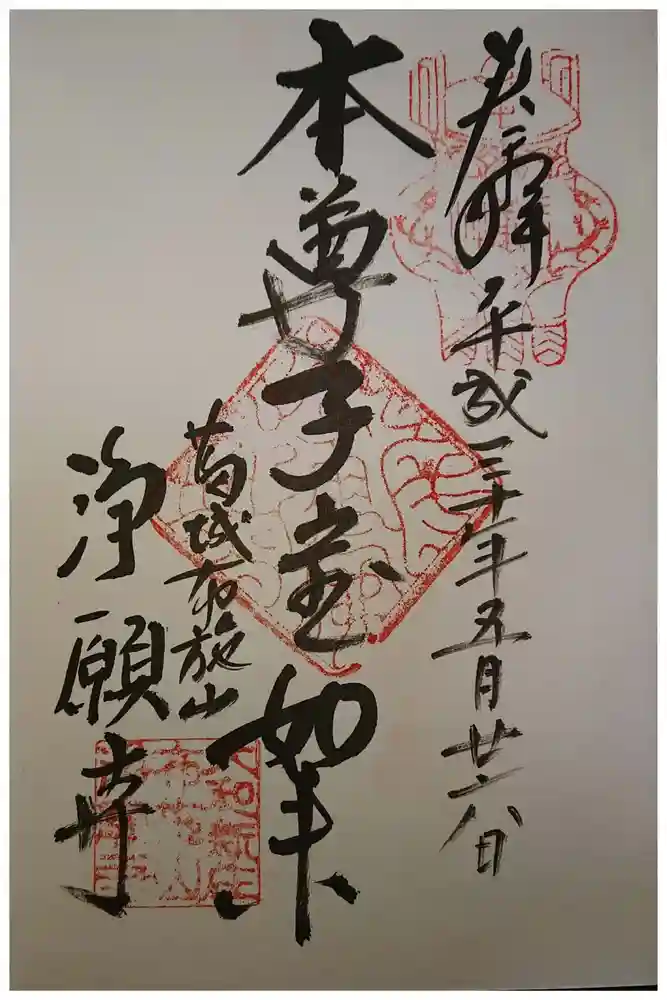 奉拝 平成三十年五月廿六日
本尊子宝如来
葛城布施山
浄願寺